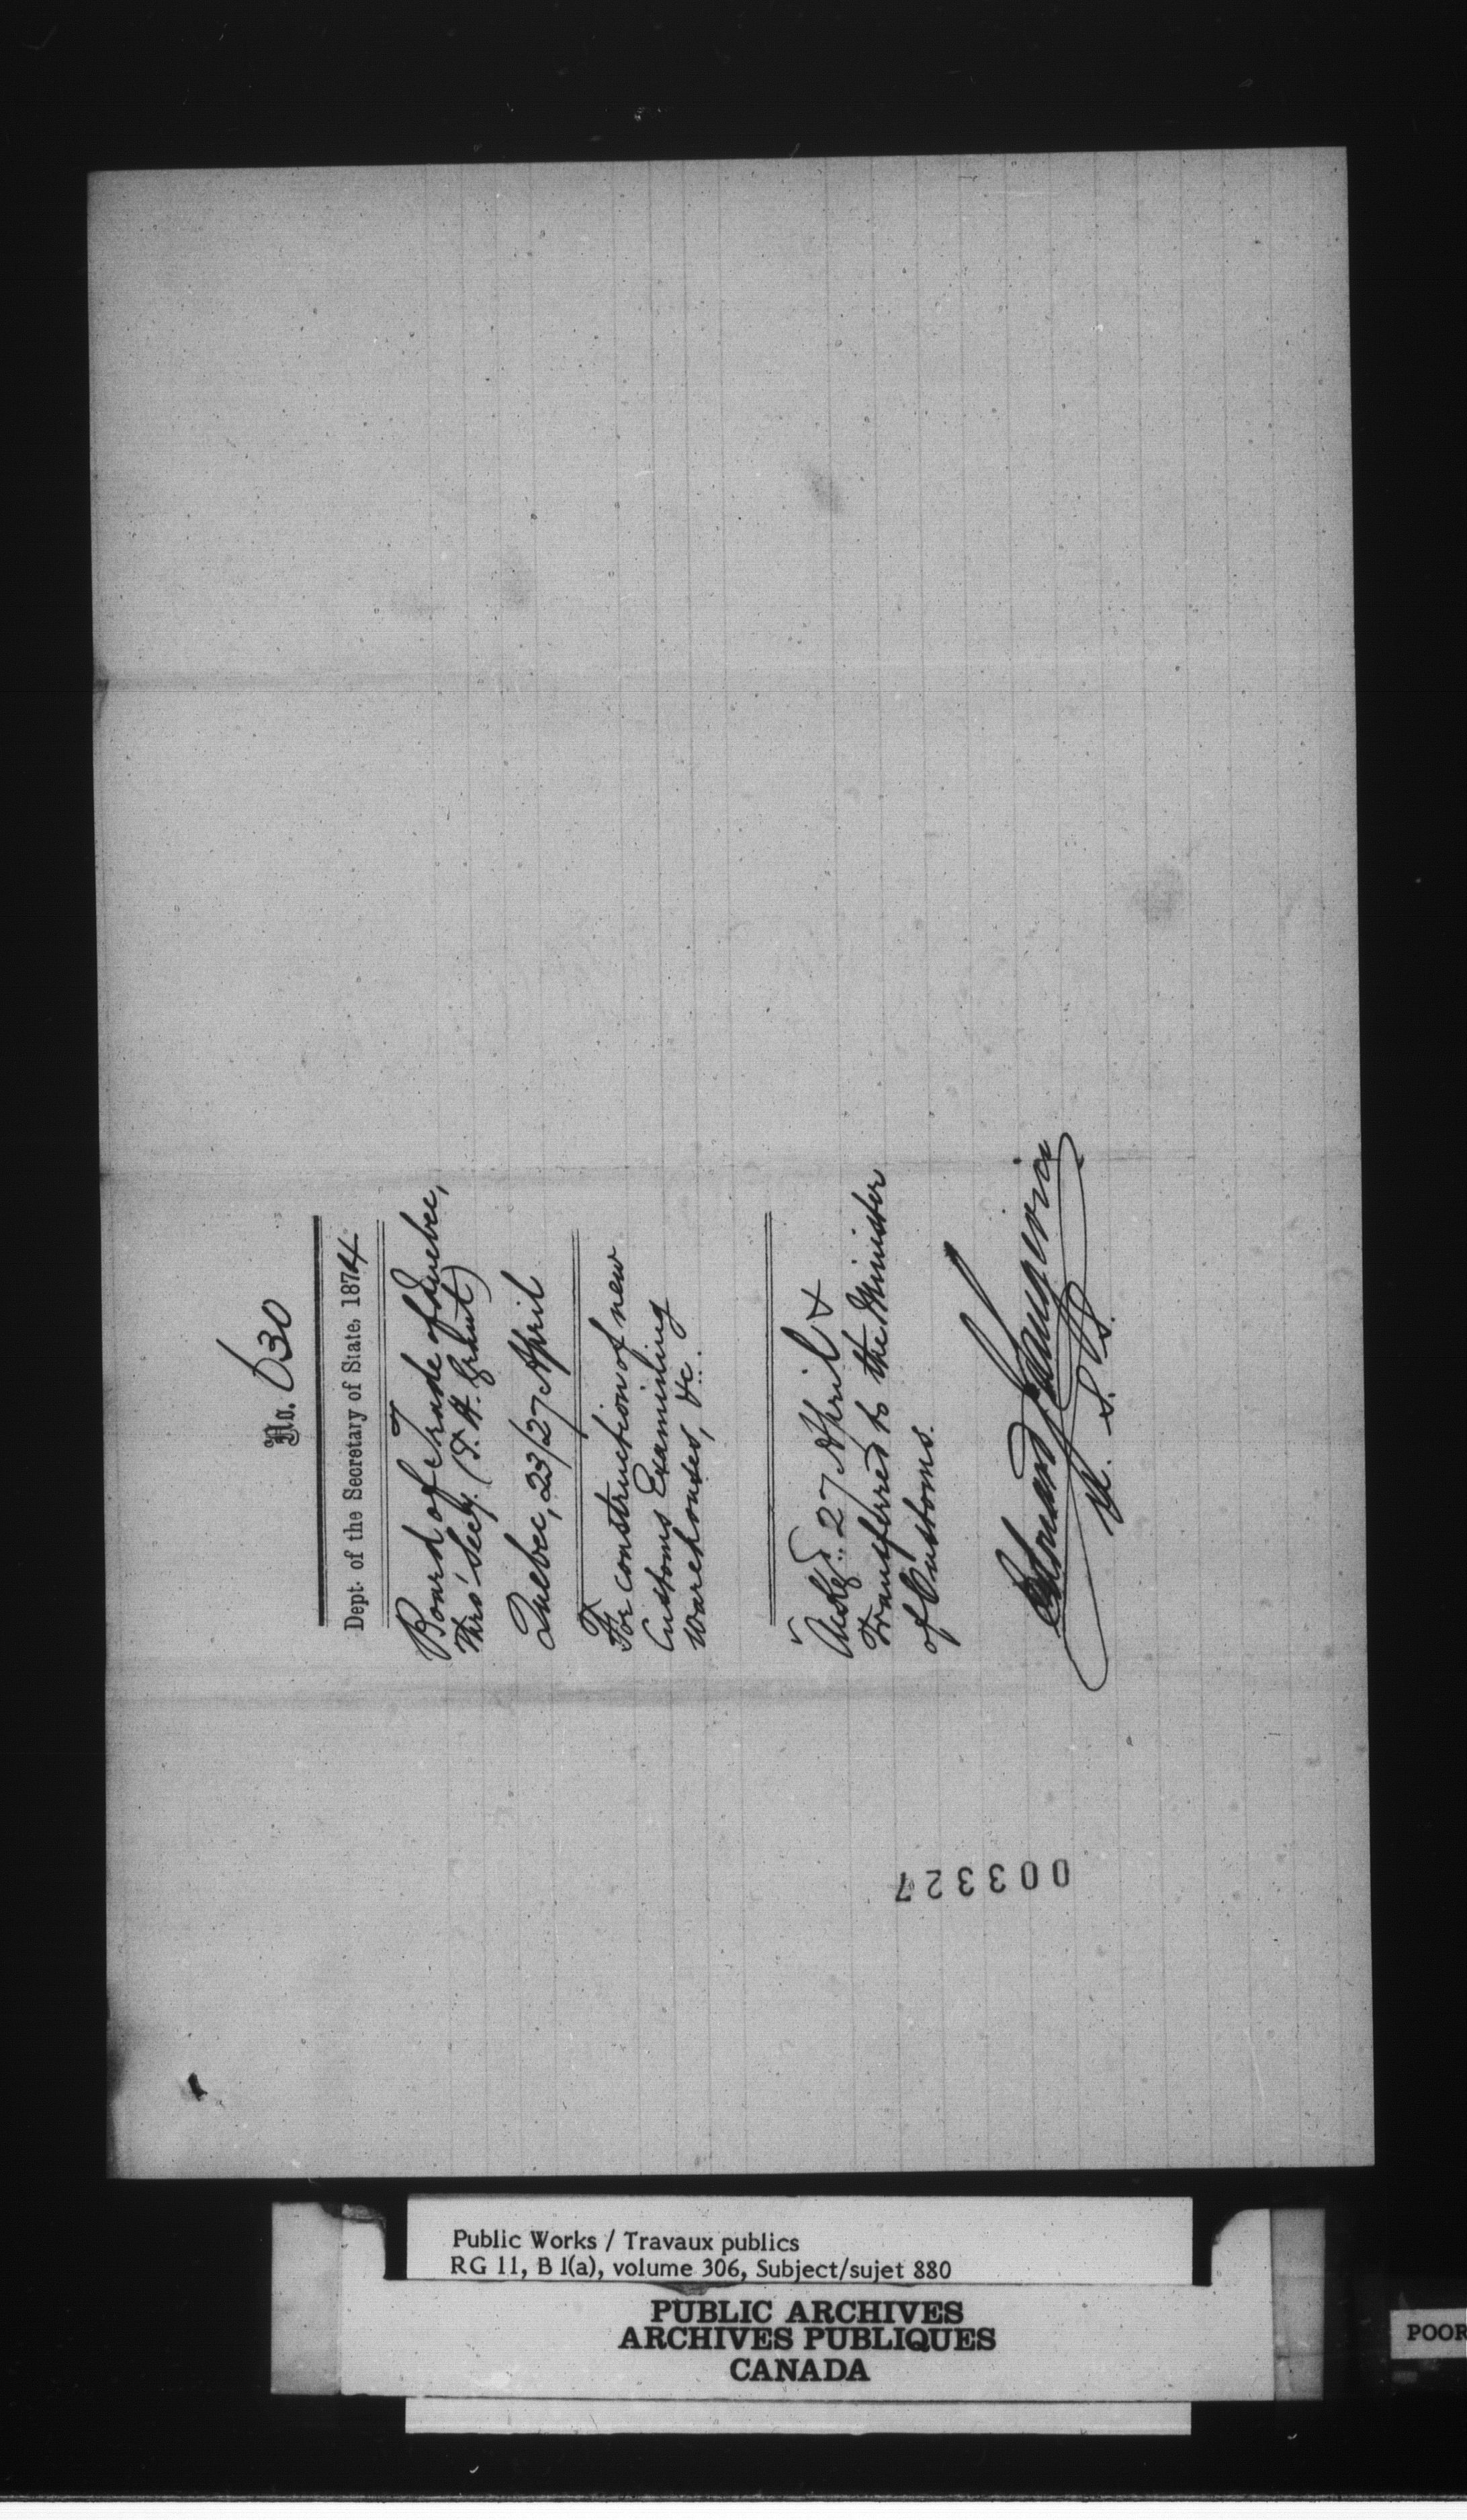 No. 630
Dept. of the Secretary of State, 1874
Board of Trade of Quebec,
Thro' Secy. (T. H. Grant)
Quebec, 23/27 April
For construction of new
Customs Examining
Warehouses, &c.
Ackgd. 27 April &
Transferred to the Minister
of Customs.
Edouard J Langevin
U. S. S.
003327
Public Works / Travaux publics
RG 11, B 1(a), volume 306, Subject/sujet 880
PUBLIC ARCHIVES
ARCHIVES PUBLIQUES
CANADA
POOR